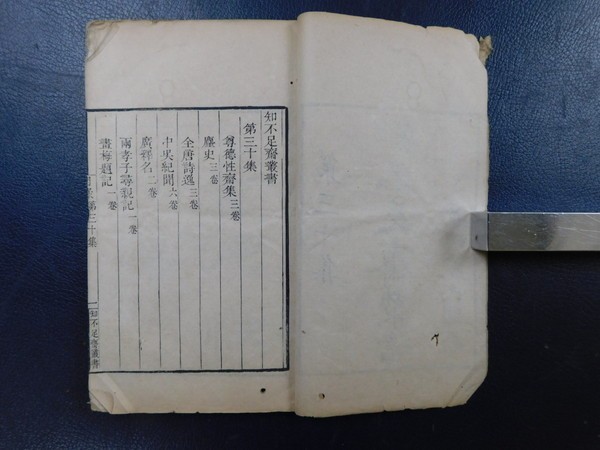 知不足齋叢書
第三十集
尊德性齋集三卷
麈史三卷
全唐詩逸三卷
中吳紀聞六卷
廣釋名二卷
兩孝子尋親記一卷
畫梅題記一卷
第三十集
一知不足齋叢書